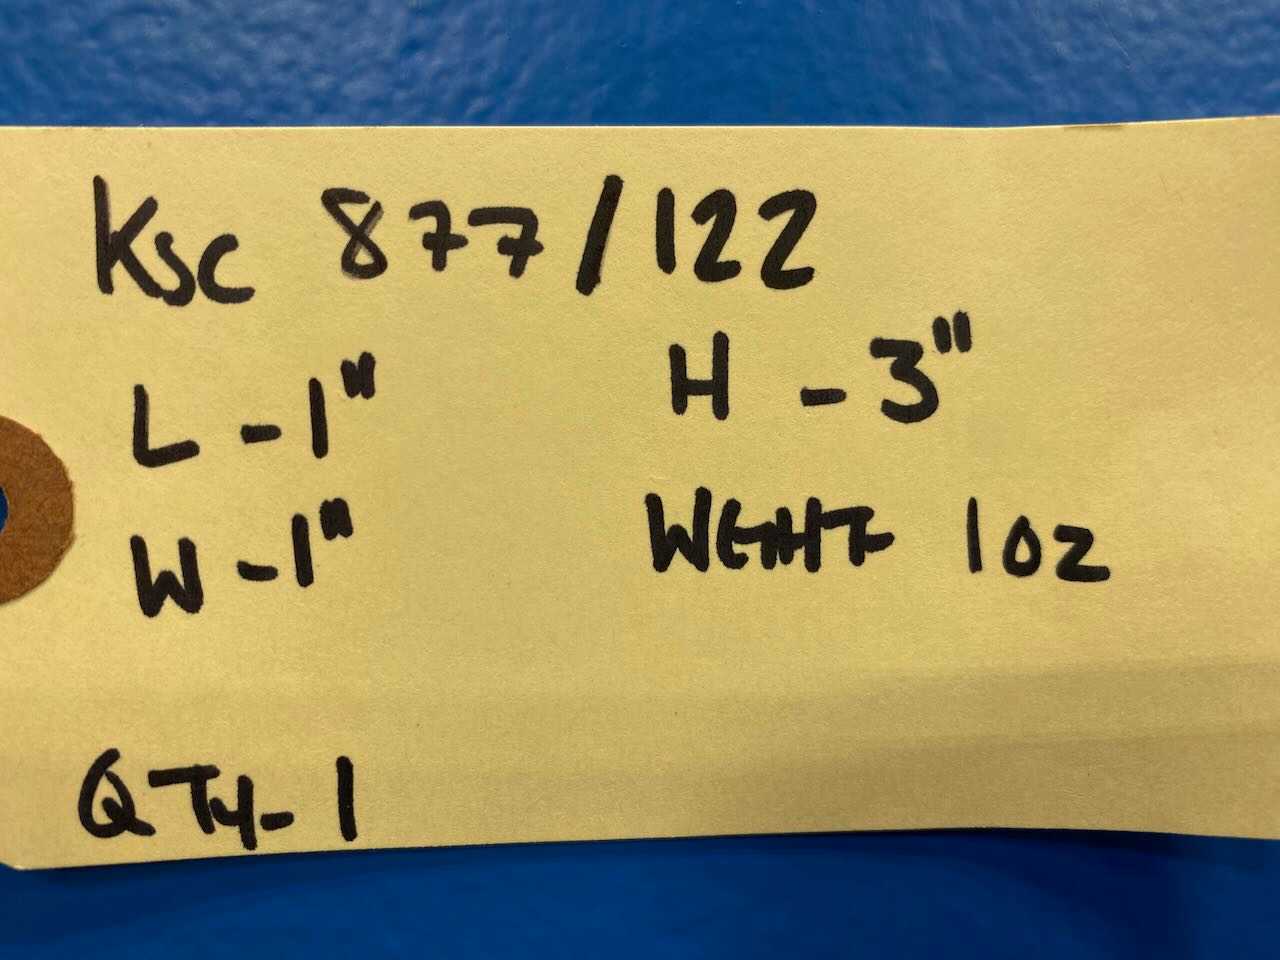 KSC 877/122
L - 1" H - 3"
W - 1" WEHT 1oz
QTY - 1